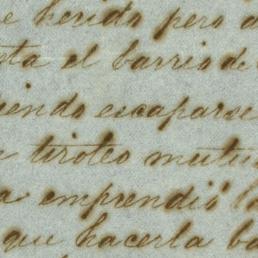 e herido pero a
sta el barrio de
iendo escaparse
tiroteo mutu
a emprendió l
que hacerla ba